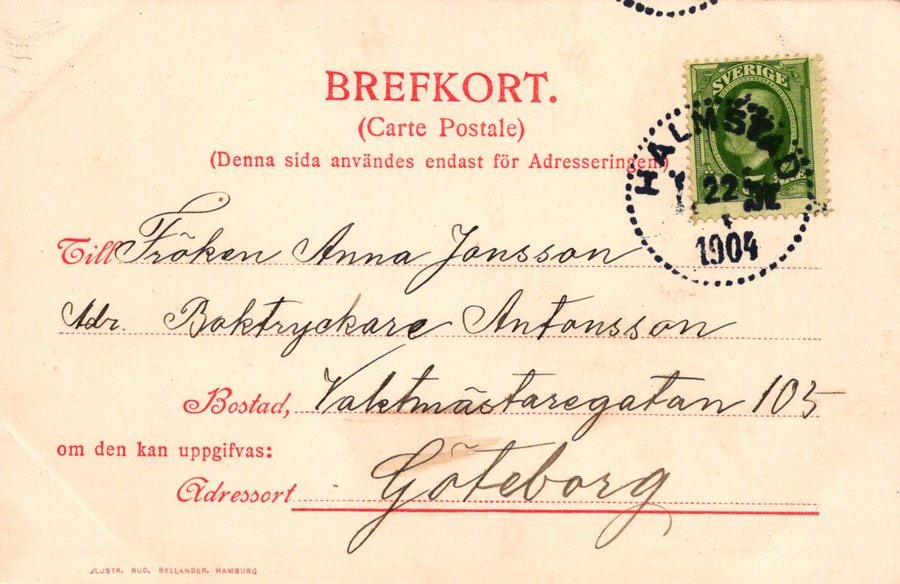 BREFKORT.
(Carte Postale)
(Denna sida användes endast för Adresseringen.)
SVERIGE
HALMSTAD
22
1904
Till Fröken Anna Jonsson
Adr. Boktryckare Antonsson
Bostad, Vaktmästaregatan 103
om den kan uppgifvas:
Adressort Göteborg
JLUSTR. RUD. BELLANDER. HAMBURG